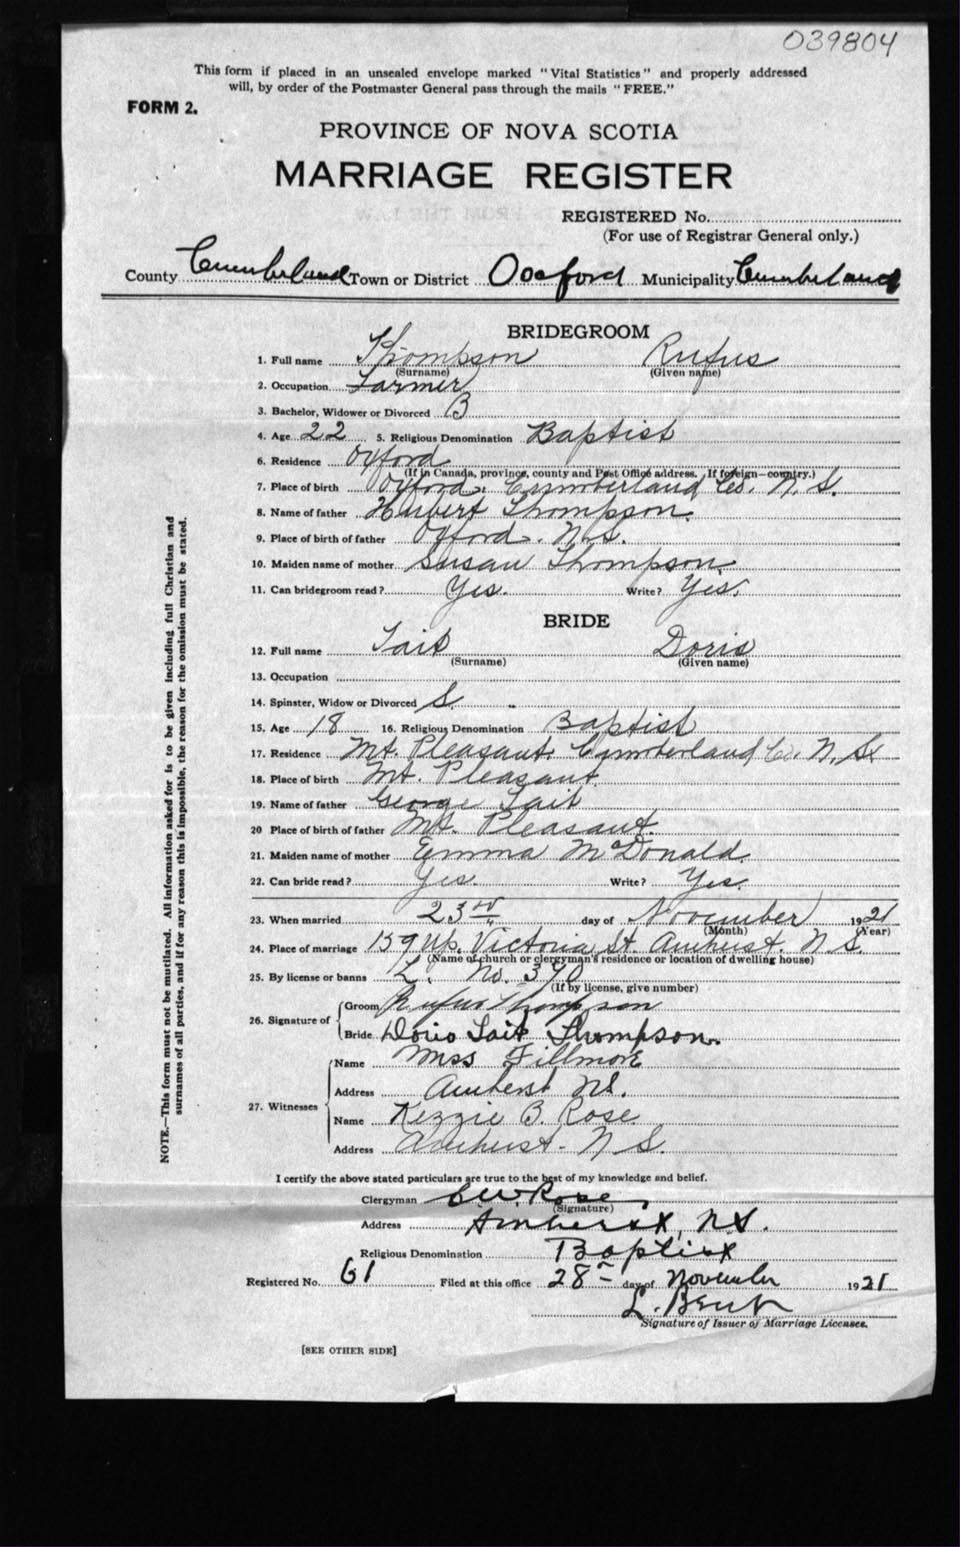 039804
This form if placed in an unsealed envelope marked "Vital Statistics" and properly addressed
will, by order of the Postmaster General pass through the mails "FREE."
FORM 2.
PROVINCE OF NOVA SCOTIA
MARRIAGE REGISTER
REGISTERED No.
(For use of Registrar General only.)
County Cumberland Town or District Oxford Municipality Cumberland
BRIDEGROOM
1. Full name Thompson Rufus
(Surname) (Given name)
2. Occupation Farmer
3. Bachelor, Widower or Divorced B
4. Age 22 5. Religious Denomination Baptist
6. Residence Oxford
(If in Canada, province, county and Post Office address. If foreign—country.)
7. Place of birth Oxford. Cumberland Co. N. S.
8. Name of father Hubert Thompson.
9. Place of birth of father Oxford. N.S.
10. Maiden name of mother Susan Thompson.
11. Can bridegroom read? Yes. Write? Yes.
BRIDE
12. Full name Tait Doris
(Surname) (Given name)
13. Occupation
14. Spinster, Widow or Divorced S.
15. Age 18 16. Religious Denomination Baptist
17. Residence Mt. Pleasant. Cumberland Co. N. S.
18. Place of birth Mt. Pleasant.
19. Name of father George Tait
20 Place of birth of father Mt. Pleasant.
21. Maiden name of mother Emma McDonald.
22. Can bride read? Yes. Write? Yes.
23. When married 23rd day of November 1921
(Month) (Year)
24. Place of marriage 159 Up. Victoria St. Amherst. N S.
(Name of church or clergyman's residence or location of dwelling house)
25. By license or banns L. No. 390
(If by license, give number)
26. Signature of Groom Rufus Thompson
Bride Doris Tait Thompson.
27. Witnesses Name Miss Fillmore
Address Amherst NS.
Name Kezzie B. Rose
Address Amherst - N S.
I certify the above stated particulars are true to the best of my knowledge and belief.
Clergyman Rose
(Signature)
Address Amherst, NS.
Religious Denomination Baptist
Registered No. 61 Filed at this office 28 day of November 1921
L. Bent
Signature of Issuer of Marriage Licenses.
[SEE OTHER SIDE]
NOTE.—This form must not be mutilated. All information asked for is to be given including full Christian and
surnames of all parties, and if for any reason this is impossible, the reason for the omission must be stated.